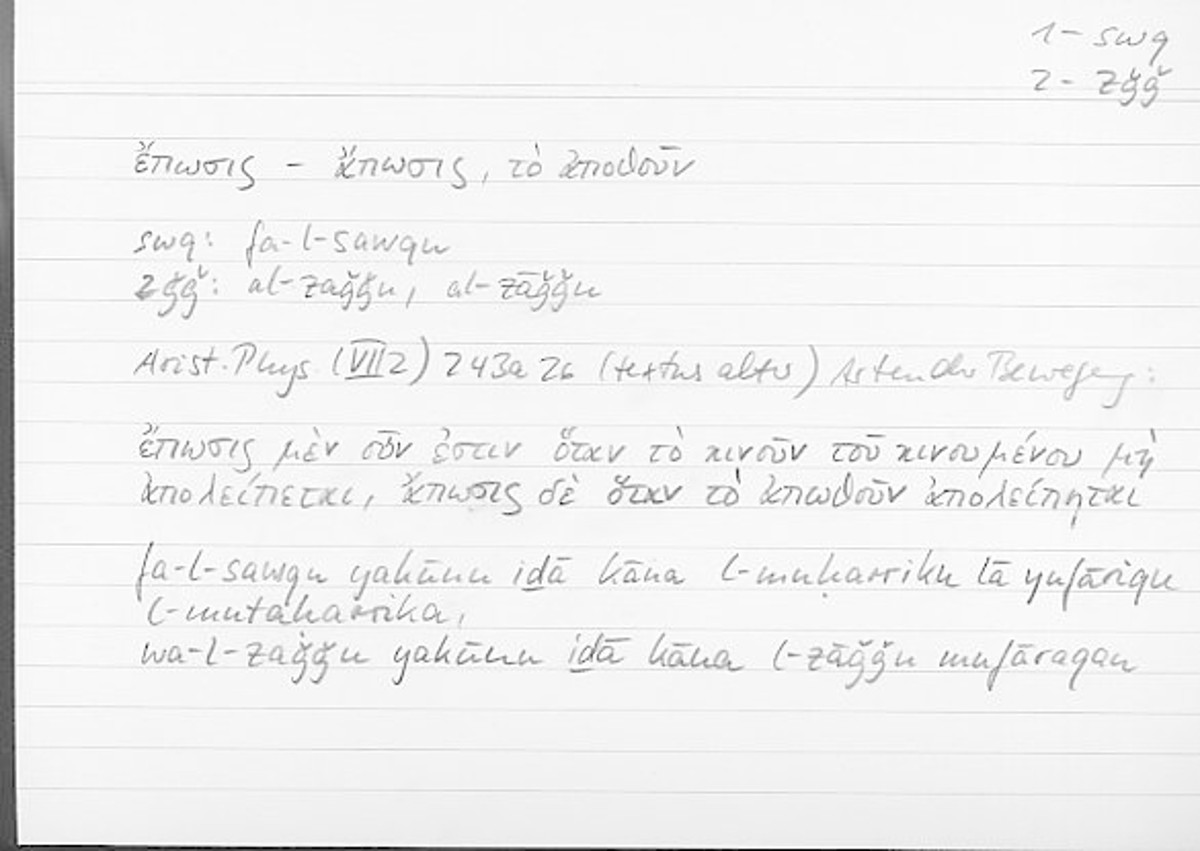 1- swq
2- zǧǧ
ἔπωσις - ἄπωσις, τὸ ἀποθοῦν
swq: fa-l-sawqu
zǧǧ: al-zaǧǧu, al-zāǧǧu
Arist. Phys. (VII 2) 243a 26 (textus alter) Arten der Bewegung:
ἔπωσις μὲν οὖν ἐστιν ὅταν τὸ κινοῦν τοῦ κινουμένου μὴ
ἀπολείπεται, ἄπωσις δὲ ὅταν τὸ ἀπωθοῦν ἀπολείπηται
fa-l-sawqu yakūnu iḏā kāna l-muḥarriku lā yufāriqu
l-mutaharrika,
wa-l-zaǧǧu yakūnu iḏā kāna l-zāǧǧu mufāraqan